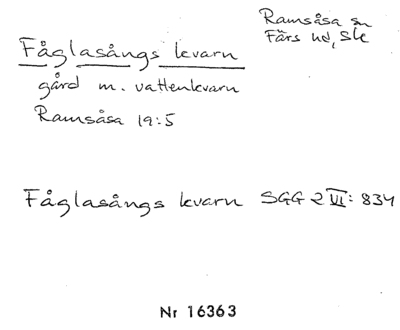 Ramsåsa sn
Färs hd, Sk
Fåglasångs kvarn
gård m. vattenkvarn
Ramsåsa 19:5
Fåglasångs kvarn SGG 2 VI: 834
Nr 16363